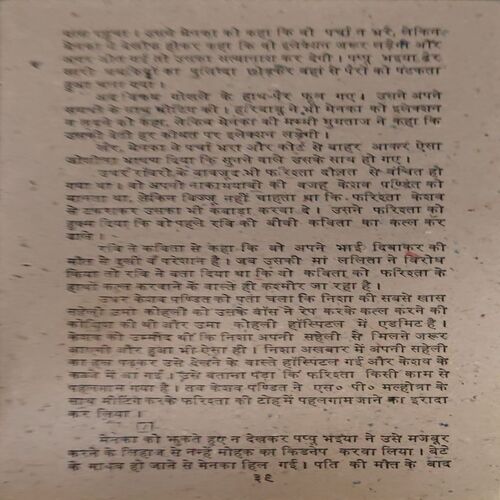 पास पहुंचा। उसने मेनका को कहा कि वो पर्चा न भरे, लेकिन
मेनका ने बेखौफ होकर कहा कि वो इलेक्शन जरूर लड़ेगी और
अगर जीत गई तो उसका सत्यानाश कर देगी। पप्पू भइया ढेर
सारी धमकियों का पुलिन्दा छोड़कर वहां से पैरों को पटकता
हुआ चला गया।
अब विक्रम गोखले के हाथ-पैर फूल गए। उसने अपने
समर्थकों के साथ मीटिंग की। हरिबाबू ने भी मेनका को इलेक्शन
न लड़ने को कहा, लेकिन मेनका की मम्मी मुमताज ने कहा कि
उसकी बेटी हर कीमत पर इलेक्शन लड़ेगी।
खैर, मेनका ने पर्चा भरा और कोर्ट से बाहर आकर ऐसा
ओजीला भाषण दिया कि सुनने वाले उसके साथ हो गए।
उधर रॉबरी के बावजूद भी फरिश्ता दौलत से वंचित हो
गया था। वो अपनी नाकामयाबी की वजह केशव पण्डित को
मानता था, लेकिन बिज्जू नहीं चाहता था कि फरिश्ता केशव
से टकराकर उसका भी कबाड़ा करवा दे। उसने फरिश्ता को
हुक्म दिया कि वो पहले रवि की बीवी कविता का कत्ल कर
डाले।
रवि ने कविता से कहा कि वो अपने भाई दिवाकर की
मौत से दुखी व परेशान है। जब उसकी मां ललिता ने विरोध
किया तो रवि ने बता दिया था कि वो कविता को फरिश्ता के
हाथों कत्ल करवाने के वास्ते ही कश्मीर जा रहा है।
उधर केशव पण्डित को पता चला कि निशा की सबसे खास
सहेली उमा कोहली को उसके बॉस ने रेप करके कत्ल करने की
कोशिश की थी और उमा कोहली हॉस्पिटल में एडमिट है।
केशव को उम्मीद थी कि निशा अपनी सहेली से मिलने जरूर
आएगी और हुआ भी ऐसा ही। निशा अखबार में अपनी सहेली
का हाल पढ़कर उसे देखने के वास्ते हॉस्पिटल गई और केशव के
कब्जे में आ गई। उसे बताना पड़ा कि फरिश्ता किसी काम से
पहलगाम गया है। तब केशव पण्डित ने एस० पी० मल्होत्रा के
साथ मीटिंग करके फरिश्ता की टोह में पहलगाम जाने का इरादा
कर लिया।
मेनका को झुकते हुए न देखकर पप्पू भईया ने उसे मजबूर
करने के लिहाज से नन्हें मोहक का किडनैप करवा लिया। बेटे
के गायब हो जाने से मेनका हिल गई। पति की मौत के बाद
३९